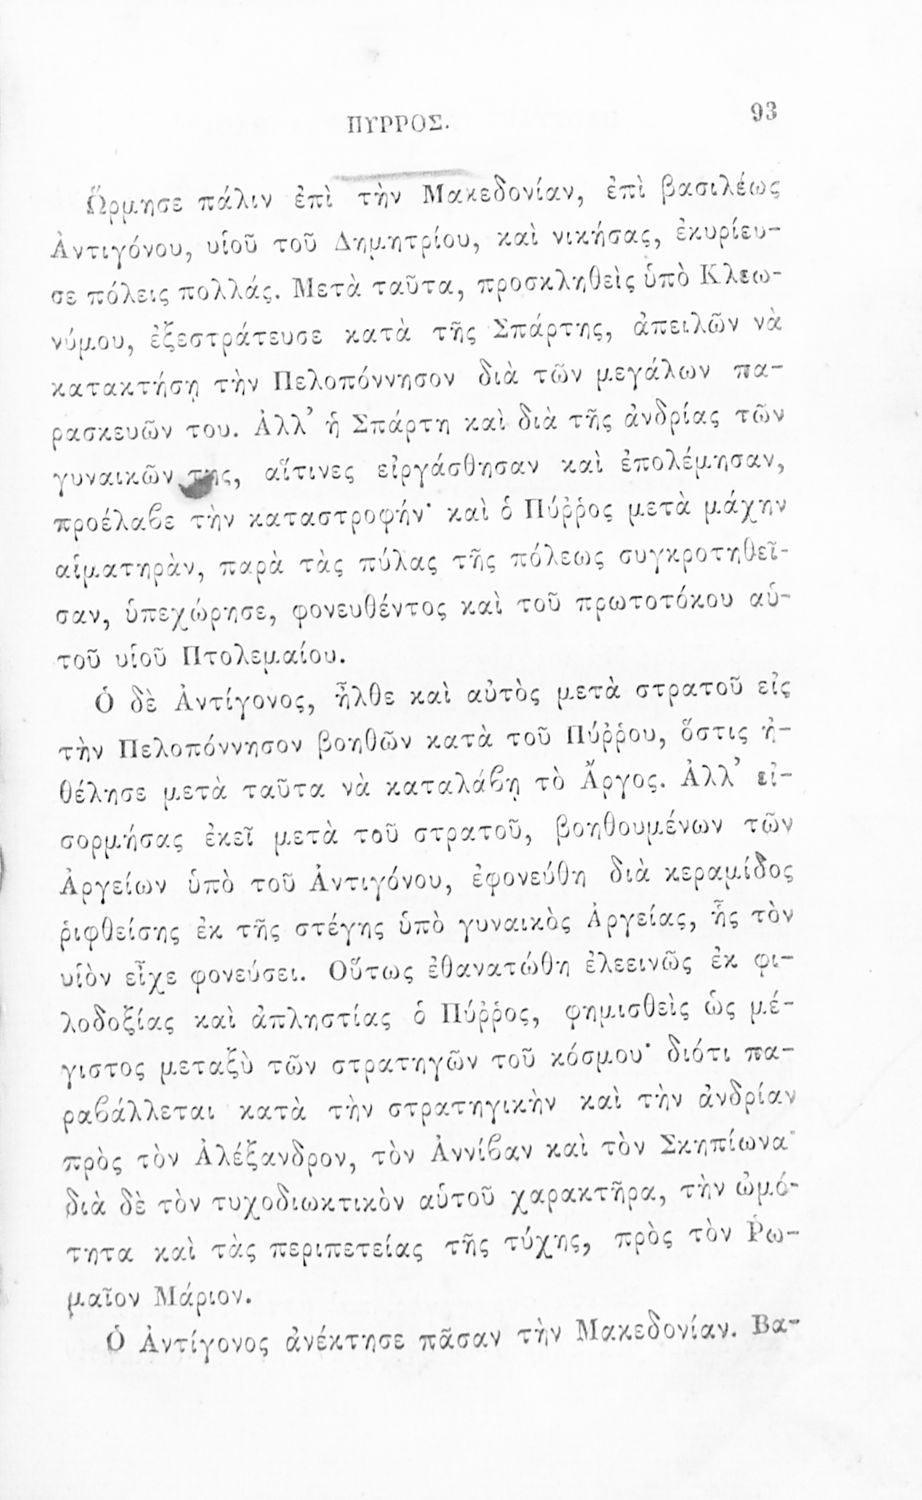 ΠΥΡΡΟΣ.
93
Ὥρμησε πάλιν ἐπὶ τὴν Μακεδονίαν, ἐπὶ βασιλέως
Ἀντιγόνου, υἱοῦ τοῦ Δημητρίου, καὶ νικήσας, ἐκυρίευ-
σε πόλεις πολλάς. Μετὰ ταῦτα, προσκληθεὶς ὑπὸ Κλεω-
νύμου, ἐξεστράτευσε κατὰ τῆς Σπάρτης, ἀπειλῶν νὰ
κατακτήσῃ τὴν Πελοπόννησον διὰ τῶν μεγάλων πα-
ρασκευῶν του. Ἀλλ’ ἡ Σπάρτη καὶ διὰ τῆς ἀνδρίας τῶν
γυναικῶν της, αἵτινες εἰργάσθησαν καὶ ἐπολέμησαν,
προέλαβε τὴν καταστροφήν· καὶ ὁ Πύῤῥος μετὰ μάχην
αἱματηρὰν, παρὰ τὰς πύλας τῆς πόλεως συγκροτηθεῖ-
σαν, ὑπεχώρησε, φονευθέντος καὶ τοῦ πρωτοτόκου αὑ-
τοῦ υἱοῦ Πτολεμαίου.
Ὁ δὲ Ἀντίγονος, ἦλθε καὶ αὐτὸς μετὰ στρατοῦ εἰς
τὴν Πελοπόννησον βοηθῶν κατὰ τοῦ Πύῤῥου, ὅστις ἠ-
θέλησε μετὰ ταῦτα νὰ καταλάβῃ τὸ Ἄργος. Ἀλλ’ εἰ-
σορμήσας ἐκεῖ μετὰ τοῦ στρατοῦ, βοηθουμένων τῶν
Ἀργείων ὑπὸ τοῦ Ἀντιγόνου, ἐφονεύθη διὰ κεραμίδος
ῥιφθείσης ἐκ τῆς στέγης ὑπὸ γυναικὸς Ἀργείας, ἧς τὸν
υἱὸν εἶχε φονεύσει. Οὕτως ἐθανατώθη ἐλεεινῶς ἐκ φι-
λοδοξίας καὶ ἀπληστίας ὁ Πύῤῥος, φημισθεὶς ὡς μέ-
γιστος μεταξὺ τῶν στρατηγῶν τοῦ κόσμου· διότι πα-
ραβάλλεται κατὰ τὴν στρατηγικὴν καὶ τὴν ἀνδρίαν
πρὸς τὸν Ἀλέξανδρον, τὸν Ἀννίβαν καὶ τὸν Σκηπίωνα·
διὰ δὲ τὸν τυχοδιωκτικὸν αὑτοῦ χαρακτῆρα, τὴν ὠμό-
τητα καὶ τὰς περιπετείας τῆς τύχης, πρὸς τὸν Ῥω-
μαῖον Μάριον.
Ὁ Ἀντίγονος ἀνέκτησε πᾶσαν τὴν Μακεδονίαν. Βα-